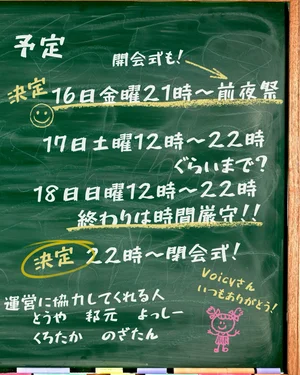 予定
開会式も!
決定 16日金曜21時〜前夜祭
17日土曜12時〜22時
ぐらいまで?
18日日曜12時〜22時
終わりは時間厳守!!
決定 22時〜閉会式!
Voicyさん
いつもありがとう!
運営に協力してくれる人
とうや 邦元 よっしー
くろたか のざたん